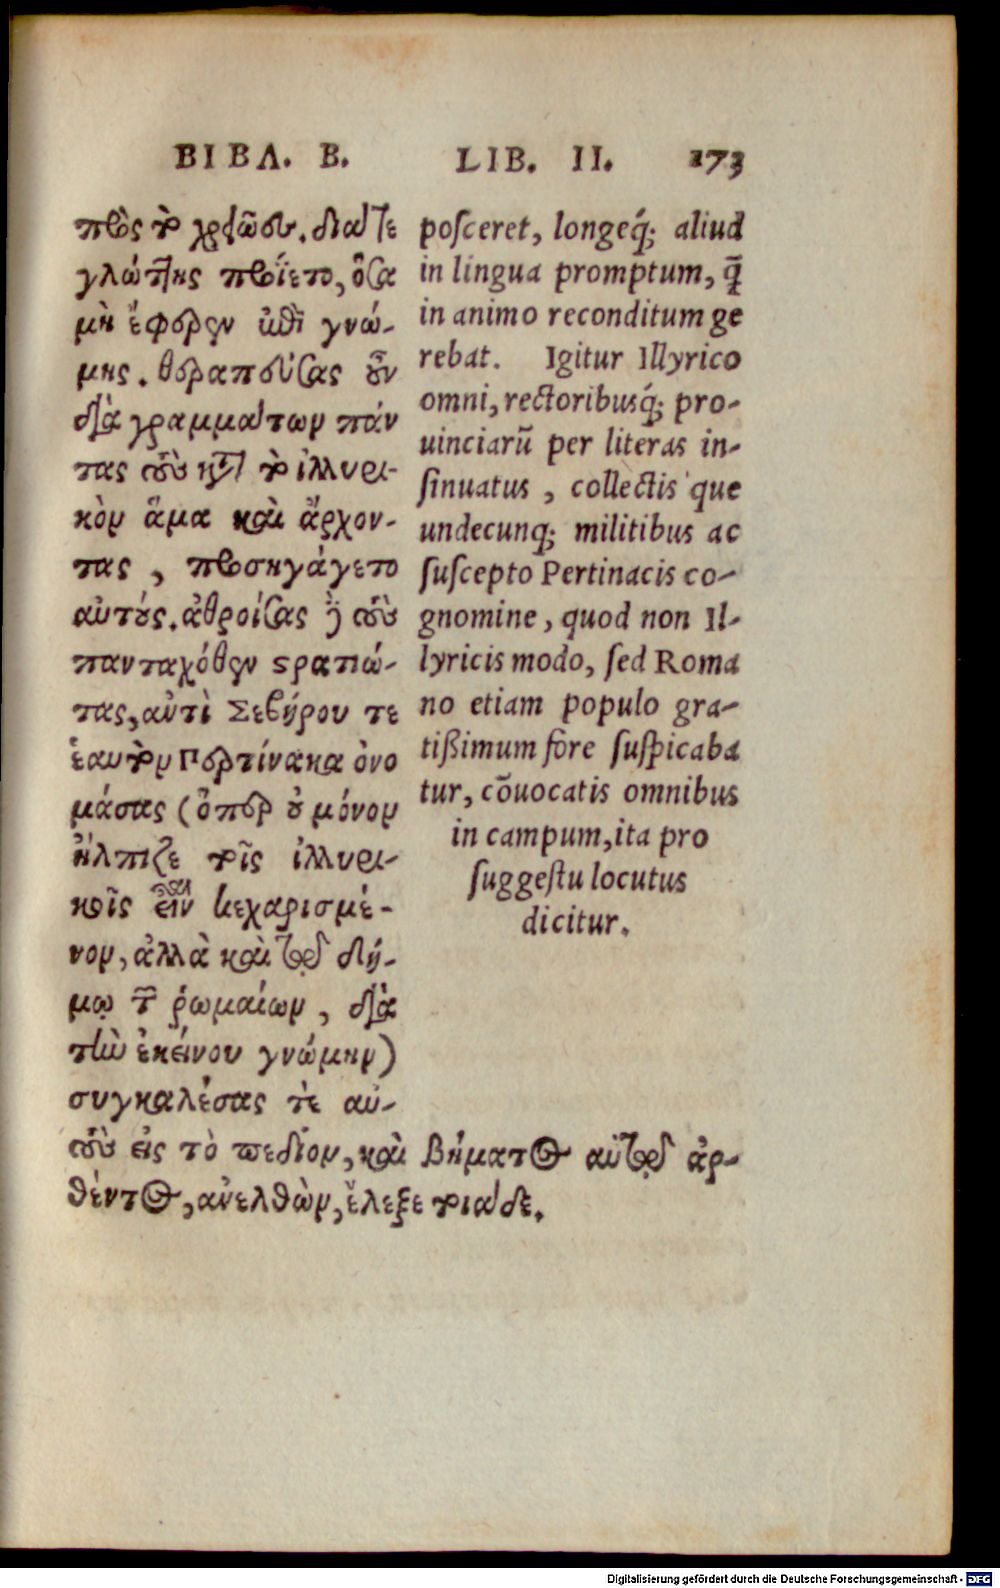 ΒΙΒΛ. Β.
πρὸς τὸ χρειῶδες. διά τε
γλώττης προΐετο, ὅσα
μὴ ἔφερεν ἀπὸ γνώ-
μης. θεραπεύσας οὖν
διὰ γραμμάτων πάν
τας τοὺς κατὰ τὸ ἰλλυρι-
κὸν ἅμα καὶ ἄρχον-
τας, προσηγάγετο
αὐτούς. ἀθροίσας δὲ τοὺς
πανταχόθεν στρατιώ-
τας, αὐτὶ Σεβήρου τε
ἑαυτὸν Περτίνακα ὀνο
μάσας (ὅπερ οὐ μόνον
ἤλπιζε τοῖς ἰλλυρι-
κοῖς εἶναι κεχαρισμέ-
νον, ἀλλὰ καὶ τῷ δή-
μῳ τῶν ῥωμαίων, διὰ
τὴν ἐκείνου γνώμην)
συγκαλέσας τε αὐ-
τοὺς εἰς τὸ πεδίον, καὶ βήματος αὐτῷ ἀρ-
θέντος, ἀνελθὼν, ἔλεξε τοιάδε.
LIB. II. 173
posceret, longeq́; aliud
in lingua promptum, q̃
in animo reconditum ge
rebat. Igitur Illyrico
omni, rectoribusq́; pro-
uinciarũ per literas in-
sinuatus, collectis que
undecunq; militibus ac
suscepto Pertinacis co-
gnomine, quod non Il-
lyricis modo, sed Roma
no etiam populo gra-
tißimum fore suspicaba
tur, cõuocatis omnibus
in campum, ita pro
suggestu locutus
dicitur.
Digitalisierung gefördert durch die Deutsche Forschungsgemeinschaft - DFG